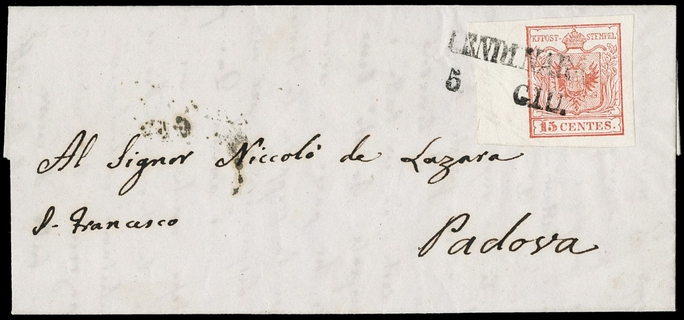 LENDINAR
5 GIU.
KKPOST-STEMPEL
15 CENTES.
Al Signor Niccolò de Lazara
S. Francesco
Padova